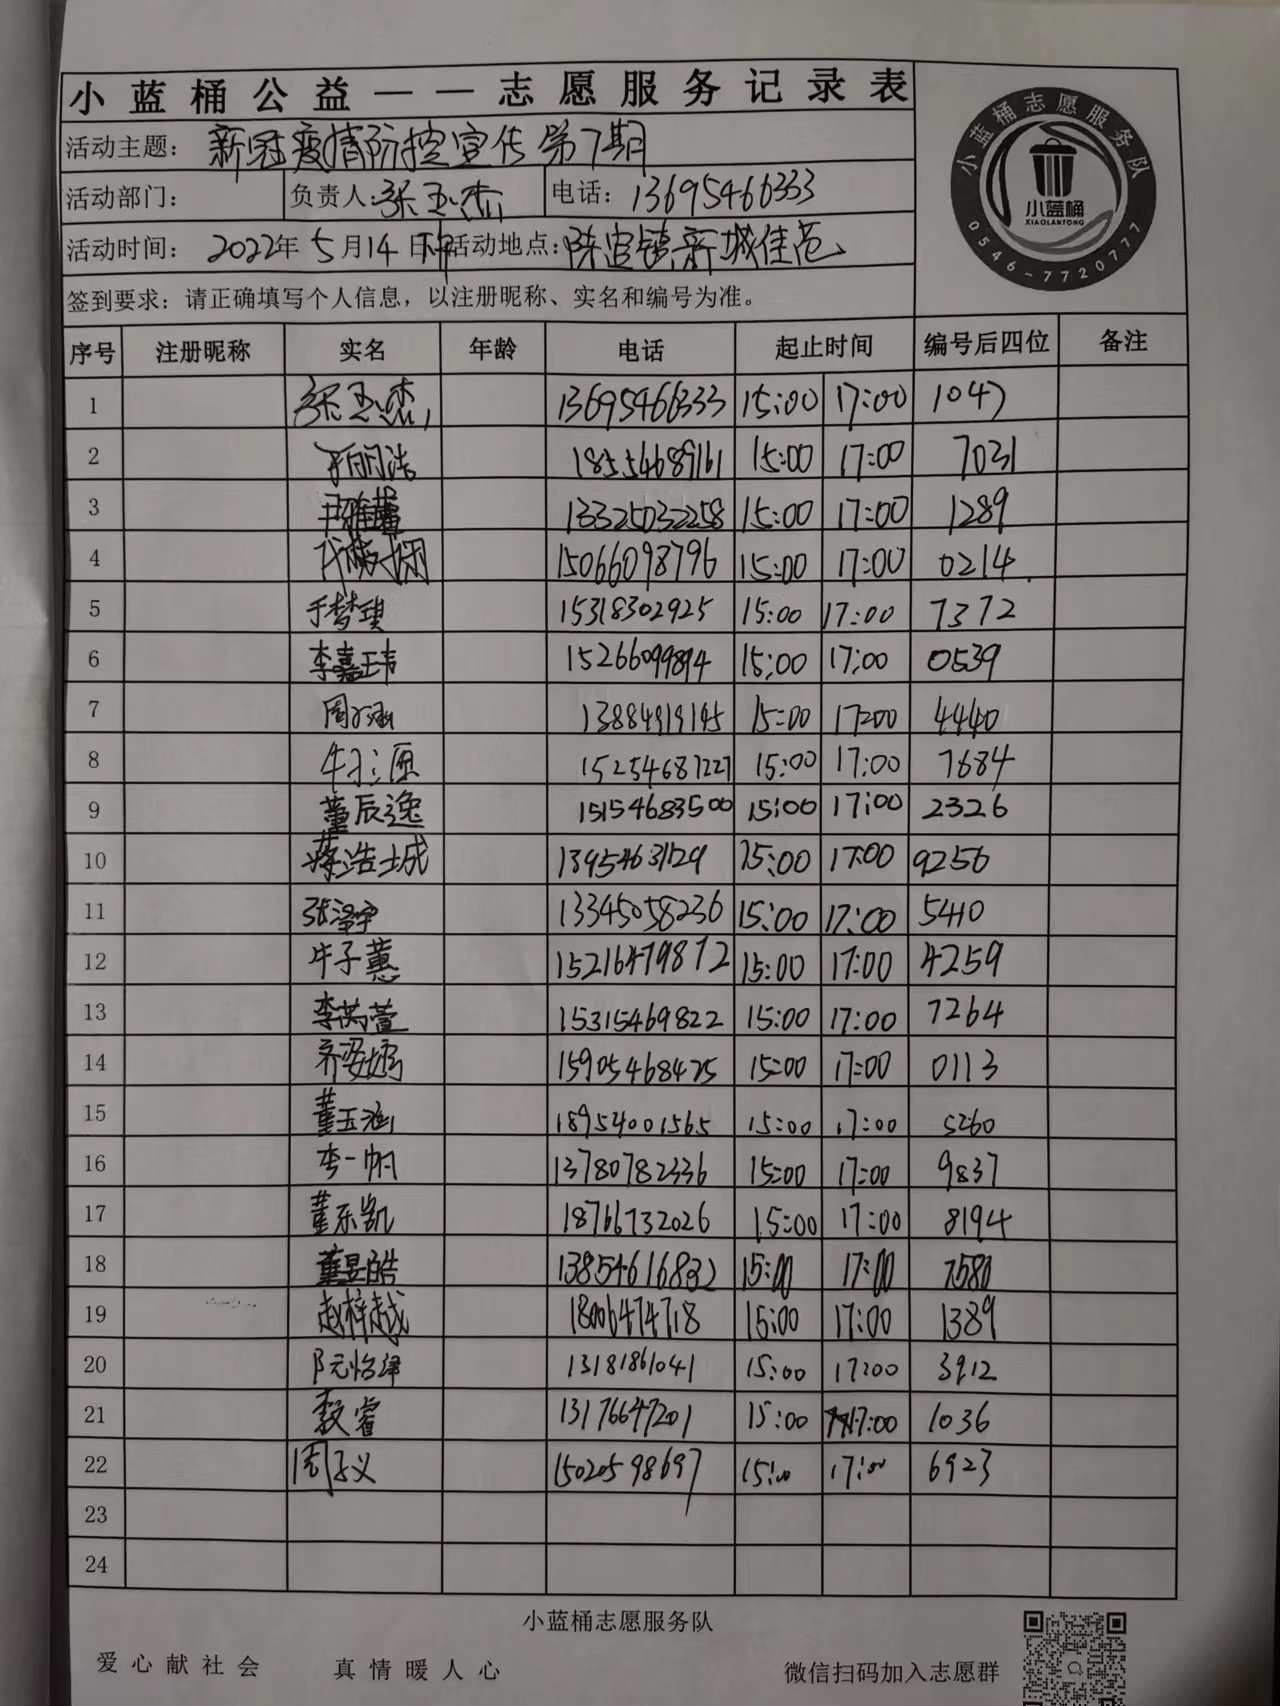 小蓝桶公益——志愿服务记录表
小蓝桶志愿服务队
小蓝桶
XIAOLANTONG
0546-7720777
活动主题：新冠疫情防控宣传第7期
活动部门： 负责人：张玉杰 电话：13695466333
活动时间：2022年5月14日 活动地点：陈官镇新城佳苑
签到要求：请正确填写个人信息，以注册昵称、实名和编号为准。
序号 注册昵称 实名 年龄 电话 起止时间 编号后四位 备注
1 张玉杰 13695466333 15:00 17:00 1047
2 18554689161 15:00 17:00 7031
3 尹雅馨 13325032258 15:00 17:00 1289
4 15066098796 15:00 17:00 0214
5 于梦琪 15318302925 15:00 17:00 7372
6 李嘉玮 15266099894 15:00 17:00 0539
7 13884919195 15:00 17:00 4440
8 15254687227 15:00 17:00 7684
9 董辰逸 15154683500 15:00 17:00 2326
10 蒋浩城 13954631129 15:00 17:00 9256
11 张泽宇 13345058236 15:00 17:00 5410
12 牛子蕙 15216479872 15:00 17:00 4259
13 李芮萱 15315469822 15:00 17:00 7264
14 齐姿嫣 15905468475 15:00 17:00 0113
15 董玉涵 18954001565 15:00 17:00 5260
16 李一帆 13780782336 15:00 17:00 9837
17 董乐凯 18766732026 15:00 17:00 8194
18 董昱皓 13854616832 15:00 17:00 7580
19 赵梓越 18006474718 15:00 17:00 1389
20 13181861041 15:00 17:00 3912
21 13176647201 15:00 17:00 1036
22 周子义 15020598697 15:00 17:00 6923
23
24
小蓝桶志愿服务队
爱心献社会 真情暖人心 微信扫码加入志愿群